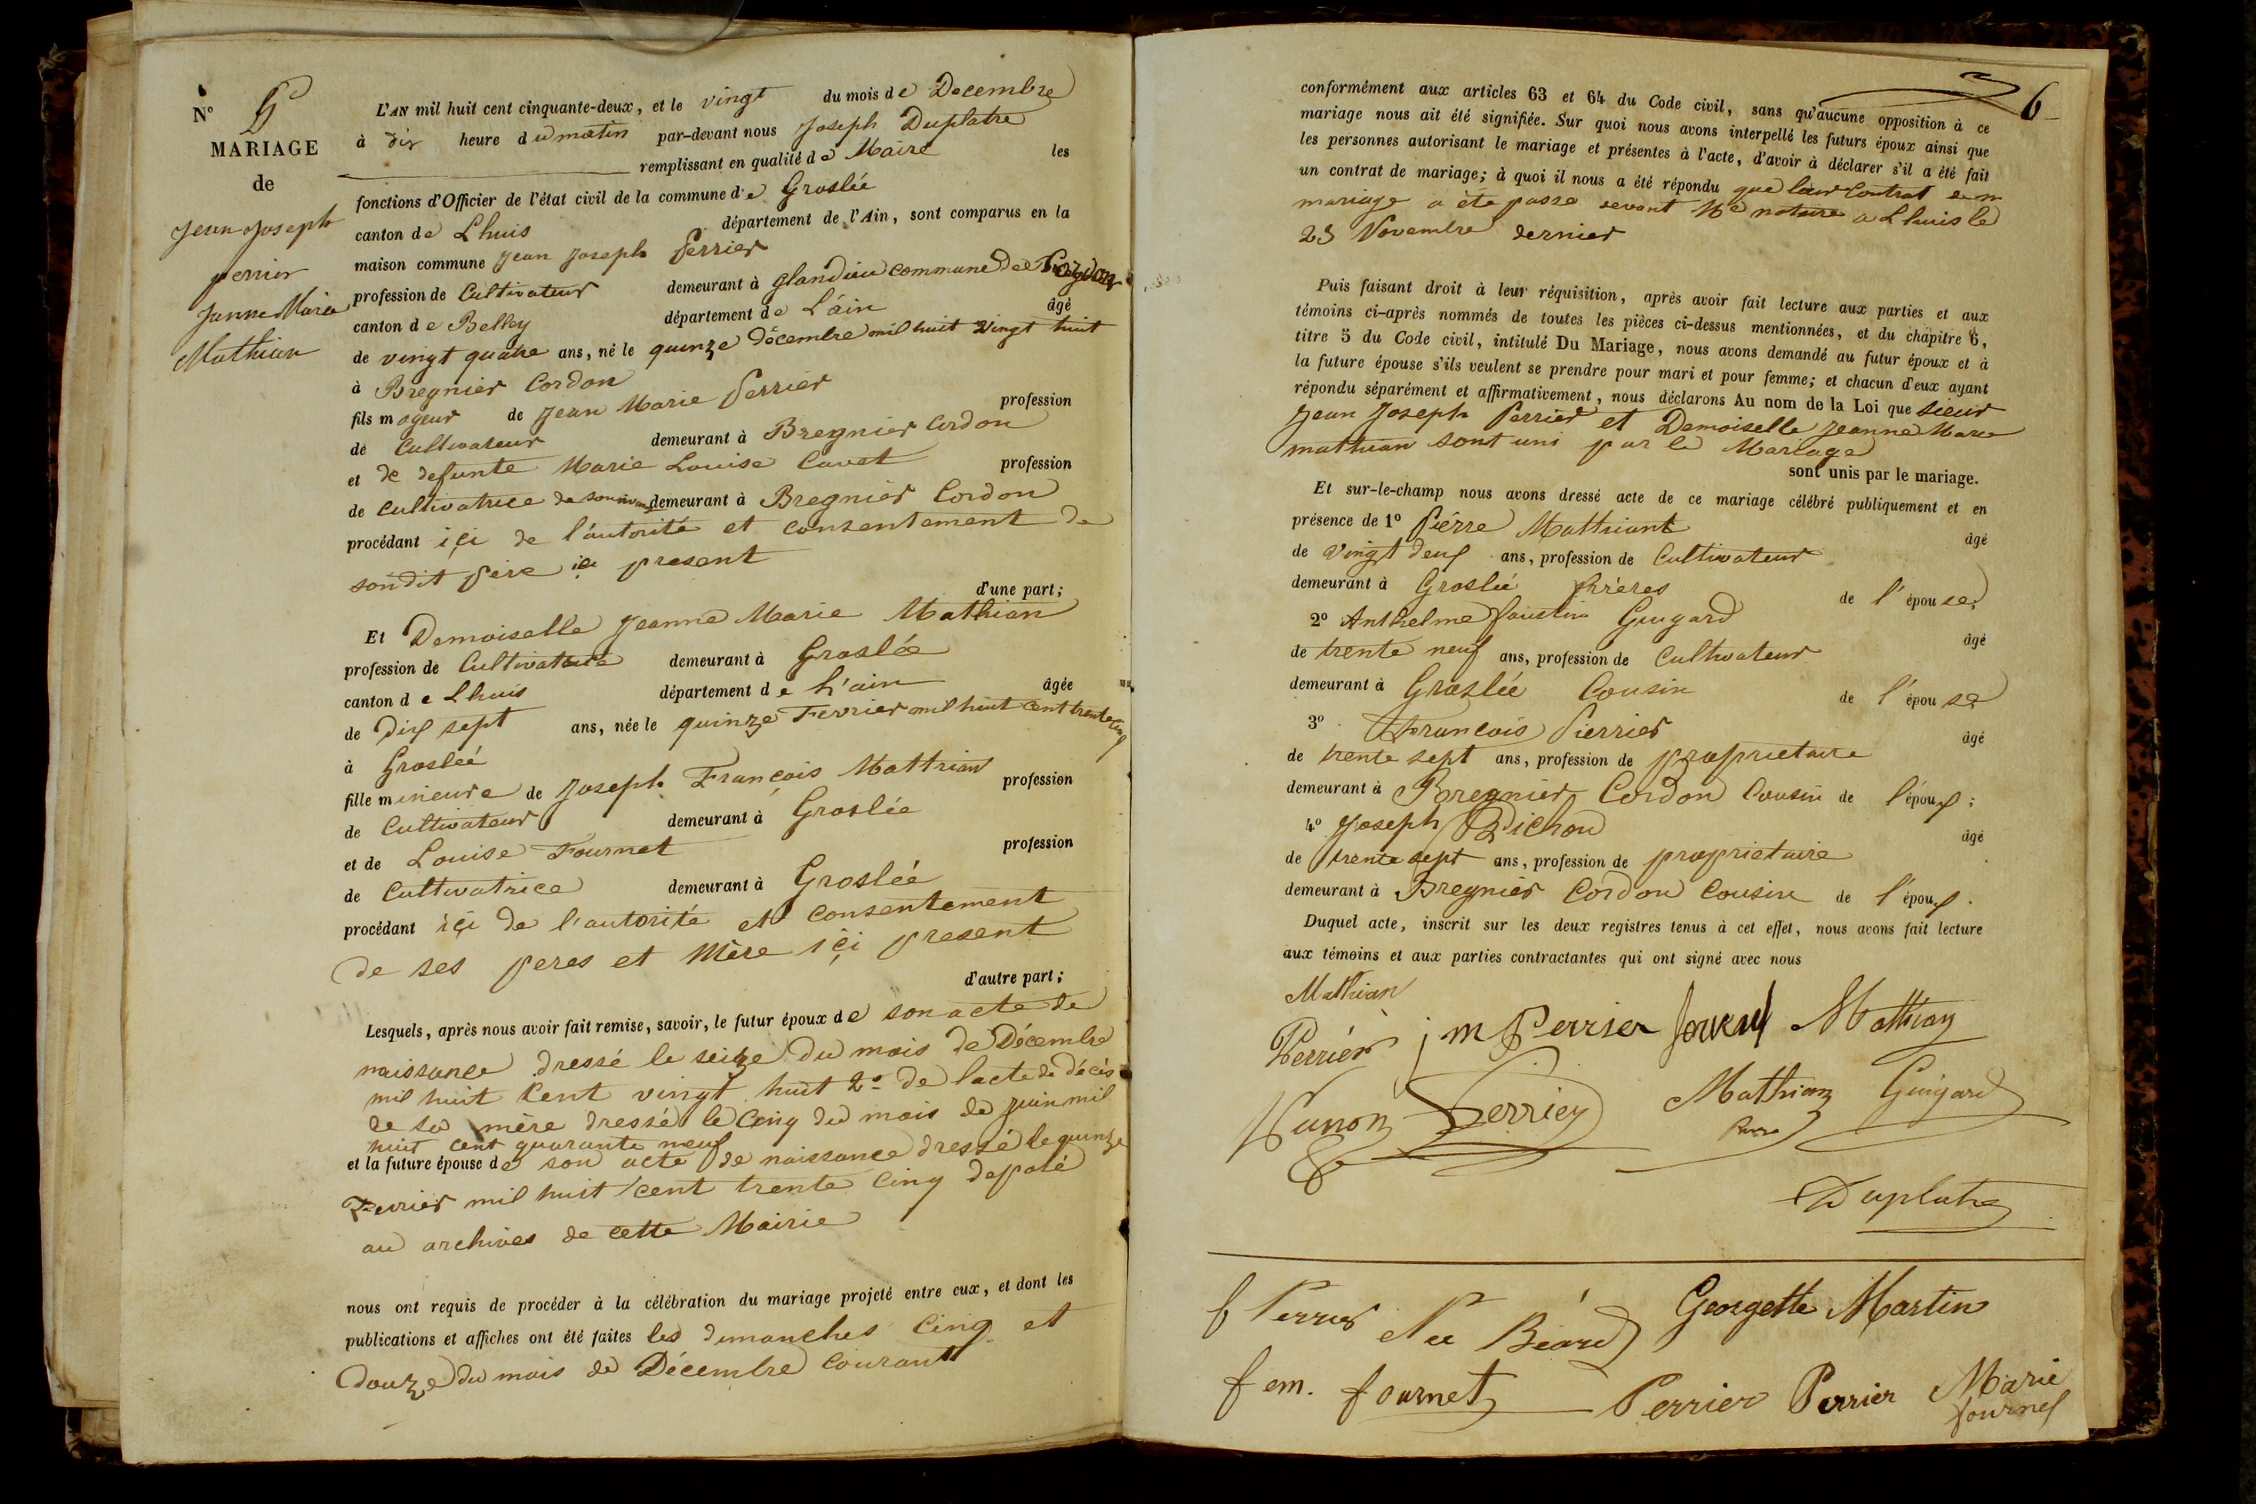 N° 5
MARIAGE
de
Jean Joseph
perrier
Janne Maria
Mathian
L'AN mil huit cent cinquante-deux, et le vingt du mois de Decembre
à dix heure du matin par-devant nous Joseph Duplatre
remplissant en qualité de Maire les
fonctions d'Officier de l'état civil de la commune de Groslée
canton de Lhuis département de l'Ain, sont comparus en la
maison commune Jean Joseph Perrier
profession de Cultivateur demeurant à glandieu commune de
canton de Belley département de L'ain âgé
de vingt quatre ans, né le quinze décembre mil huit vingt huit
à Bregnier Cordon
fils mageur de Jean Marie Perrier profession
de Cultivateur demeurant à Bregnier Cordon
et de defunte Marie Louise Cavet profession
de Cultivatrice de son vivant demeurant à Bregnier Cordon
procédant içi de l'autorité et consentement de
son dit père ici present
d'une part;
Et Demoiselle Jeanne Marie Mathian
profession de Cultivatrice demeurant à Groslée
canton de Lhuis département de L'ain âgée
de dix sept ans, née le quinze Fevrier mil huit cent trente cinq
à Groslée
fille mineure de Joseph François Matthian profession
de Cultivateur demeurant à Groslée
et de Louise Fournet profession
de Cultivatrice demeurant à Groslée
procédant içi de l'autorité et consentement
de ses peres et Mère içi present
d'autre part;
Lesquels, après nous avoir fait remise, savoir, le futur époux de son acte de
naissance dressé le seize du mois de Décembre
mil huit Cent vingt huit 2° de lacte de décès
de sa mère dressé le Cinq du mois de juin mil
huit cent quarante neuf
et la future épouse de son acte de naissance dressé le quinze
Fevrier mil huit cent trente Cinq deposé
au archives de cette Mairie
nous ont requis de procéder à la célébration du mariage projeté entre eux, et dont les
publications et affiches ont été faites les dimanches Cinq et
Douze du mois de Décembre Courant
6
conformément aux articles 63 et 64 du Code civil, sans qu'aucune opposition à ce
mariage nous ait été signifiée. Sur quoi nous avons interpellé les futurs époux ainsi que
les personnes autorisant le mariage et présentes à l'acte, d'avoir à déclarer s'il a été fait
un contrat de mariage; à quoi il nous a été répondu que leur Contrat de
mariage a été passé devant Me notaire a Lhuis le
23 Novembre dernier
Puis faisant droit à leur réquisition, après avoir fait lecture aux parties et aux
témoins ci-après nommés de toutes les pièces ci-dessus mentionnées, et du chapitre 6,
titre 5 du Code civil, intitulé Du Mariage, nous avons demandé au futur époux et à
la future épouse s'ils veulent se prendre pour mari et pour femme; et chacun d'eux ayant
répondu séparément et affirmativement, nous déclarons Au nom de la Loi que sieur
Jean Joseph Perrier et Demoiselle Jeanne Marie
mathian sont uni par le Mariage
sont unis par le mariage.
Et sur-le-champ nous avons dressé acte de ce mariage célébré publiquement et en
présence de 1° Piérre Matthiant âgé
de vingt deux ans, profession de Cultivateur
demeurant à Groslée frères de l'épouse;
2° Anthelme faustin Guygard âgé
de trente neuf ans, profession de Cultivateur
demeurant à Groslée Cousin de l'épouse
3° François Pierrier âgé
de trente sept ans, profession de proprietaire
demeurant à Bregnier Cordon Cousin de l'époux;
4° Joseph Dichon âgé
de trente sept ans, profession de proprietaire
demeurant à Bregnier Cordon Cousin de l'époux.
Duquel acte, inscrit sur les deux registres tenus à cet effet, nous avons fait lecture
aux témoins et aux parties contractantes qui ont signé avec nous
Mathian
Perrier j m Perrier Mathian
Perrier Mathian Guigard
Duplatre
f Perrier Née Béard Georgette Martin
fem. fournet Perrier Perrier Marie
fournet